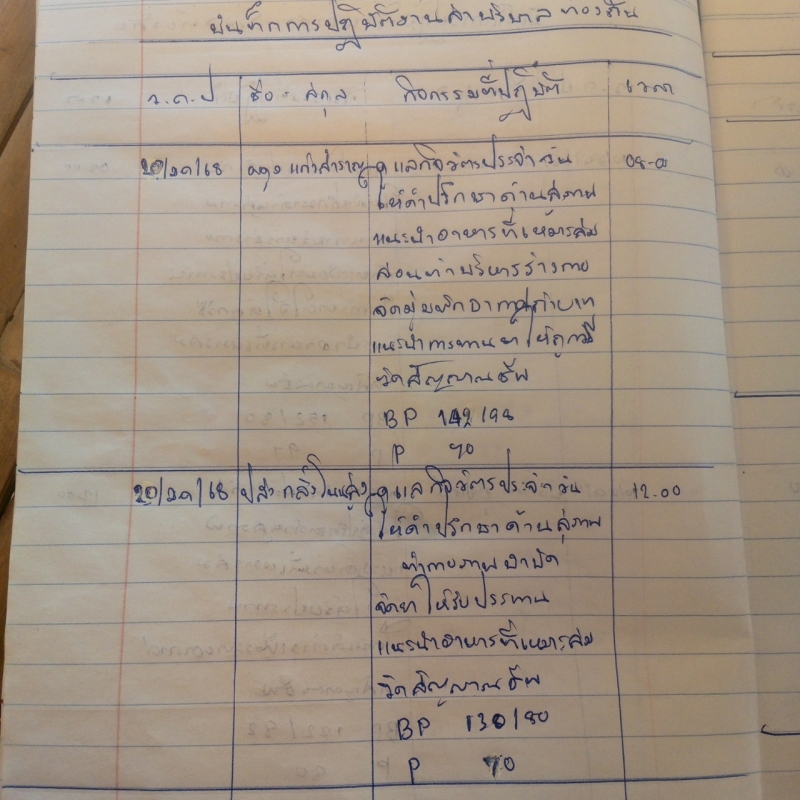 บันทึกการปฏิบัติงานสำบริบาลท้องถิ่น
ว.ด.ป ชื่อ - สกุล กิจกรรมที่ปฏิบัติ เวลา
20/มค/68 แก้วสำราญ ดูแลกิจวัตรประจำวัน 08.00
ให้คำปรึกษาด้านสุขภาพ
แนะนำอาหารที่เหมาะสม
สอนท่าบริหารร่างกาย
แนะนำการทานยาให้ถูกวิธี
วัดสัญญาณชีพ
BP 142/98
P 70
20/มค/68 ดูแลกิจวัตรประจำวัน 12.00
ให้คำปรึกษาด้านสุขภาพ
ทำกายภาพบำบัด
จัดยาให้รับประทาน
แนะนำอาหารที่เหมาะสม
วัดสัญญาณชีพ
BP 130/80
P 70